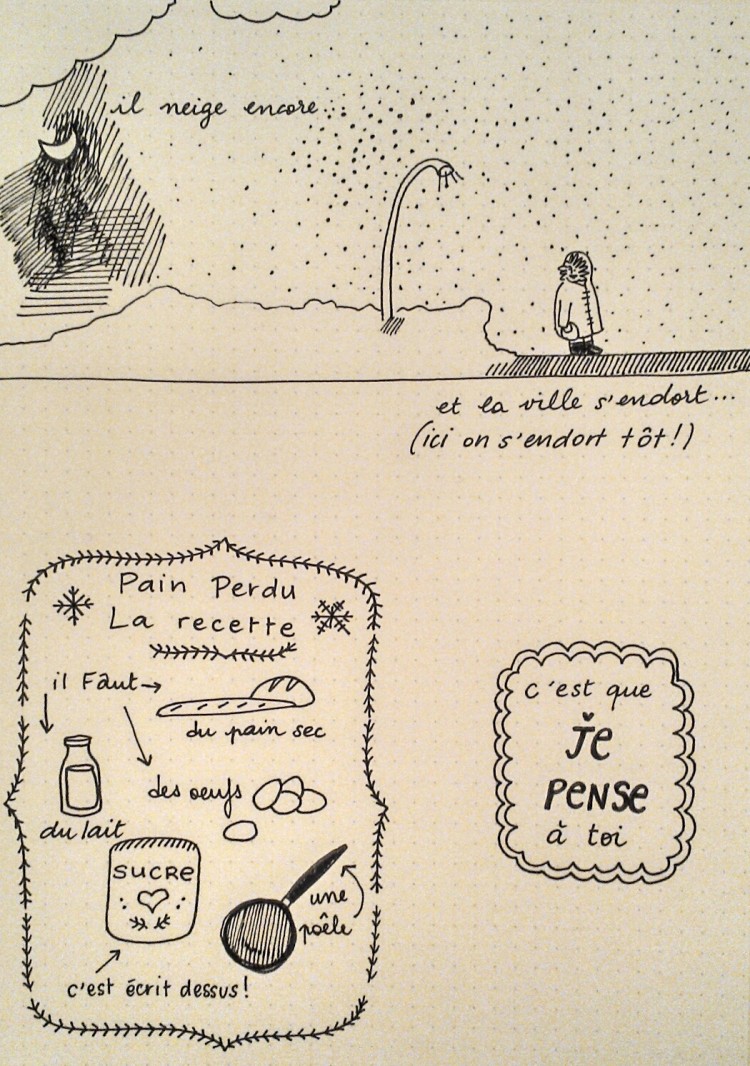 il neige encore...
et la ville s'endort...
(ici on s'endort tôt!)
Pain Perdu
La recette
il Faut
du pain sec
des oeufs
du lait
SUCRE
une
poêle
c'est écrit dessus!
c'est que
Je
PENSE
à toi